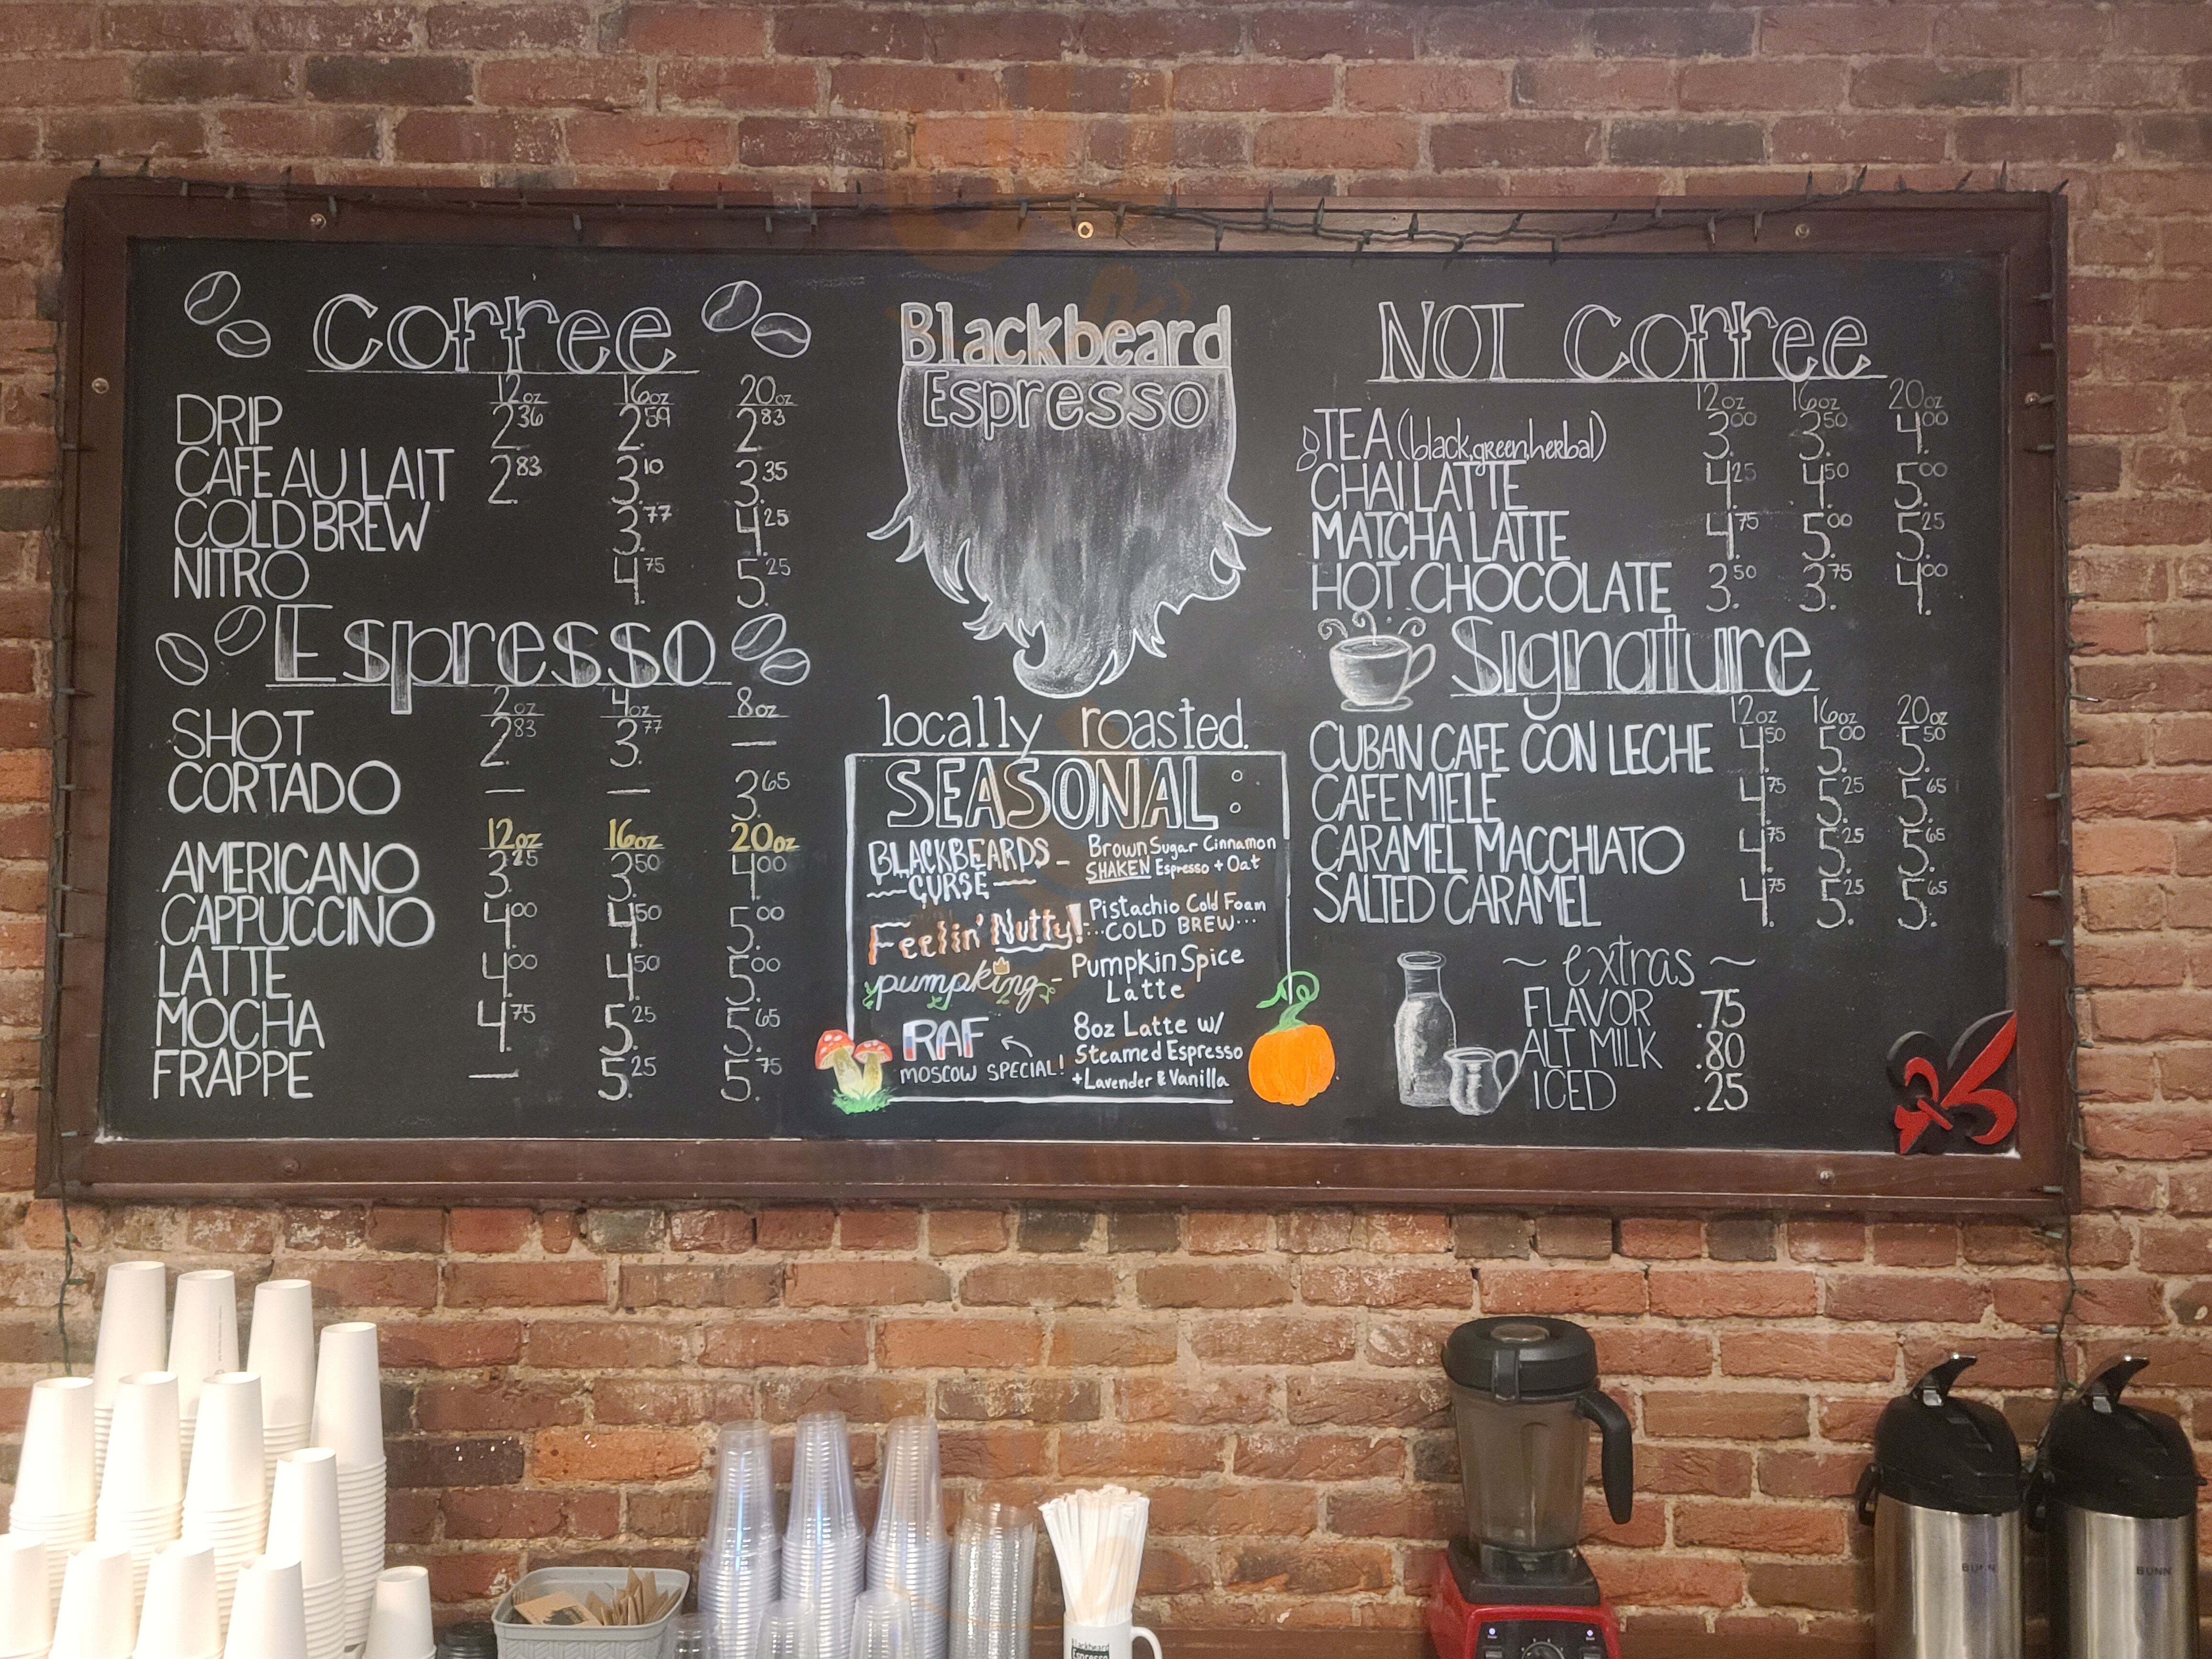 Coffee
12oz 16oz 20oz
DRIP 2.36 2.59 2.83
CAFE AU LAIT 2.83 3.10 3.35
COLD BREW 3.77 4.25
NITRO 4.75 5.25
Espresso
2oz 4oz 8oz
SHOT 2.83 3.77 —
CORTADO — — 3.65
12oz 16oz 20oz
AMERICANO 3.25 3.50 4.00
CAPPUCCINO 4.00 4.50 5.00
LATTE 4.00 4.50 5.00
MOCHA 4.75 5.25 5.65
FRAPPE — 5.25 5.75
Blackbeard
Espresso
locally roasted.
SEASONAL:
BLACKBEARDS - Brown Sugar Cinnamon
CURSE SHAKEN Espresso + Oat
Feelin' Nutty! Pistachio Cold Foam
...COLD BREW...
pumpking - Pumpkin Spice
Latte
RAF 8oz Latte w/
MOSCOW SPECIAL! Steamed Espresso
+Lavender & Vanilla
NOT Coffee
12oz 16oz 20oz
TEA (black, green, herbal) 3.00 3.50 4.00
CHAI LATTE 4.25 4.50 5.00
MATCHA LATTE 4.75 5.00 5.25
HOT CHOCOLATE 3.50 3.75 4.00
Signature
12oz 16oz 20oz
CUBAN CAFE CON LECHE 4.50 5.00 5.50
CAFE MIELE 4.75 5.25 5.65
CARAMEL MACCHIATO 4.75 5.25 5.65
SALTED CARAMEL 4.75 5.25 5.65
~ extras ~
FLAVOR .75
ALT MILK .80
ICED .25
BUNN
BUNN
Blackbeard
Espresso